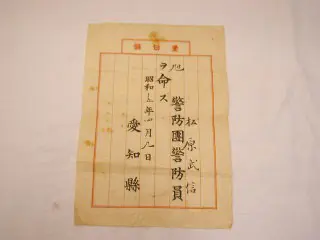 松原武信
警防團警防員
ヲ命ス
昭和十五年四月九日
愛知縣